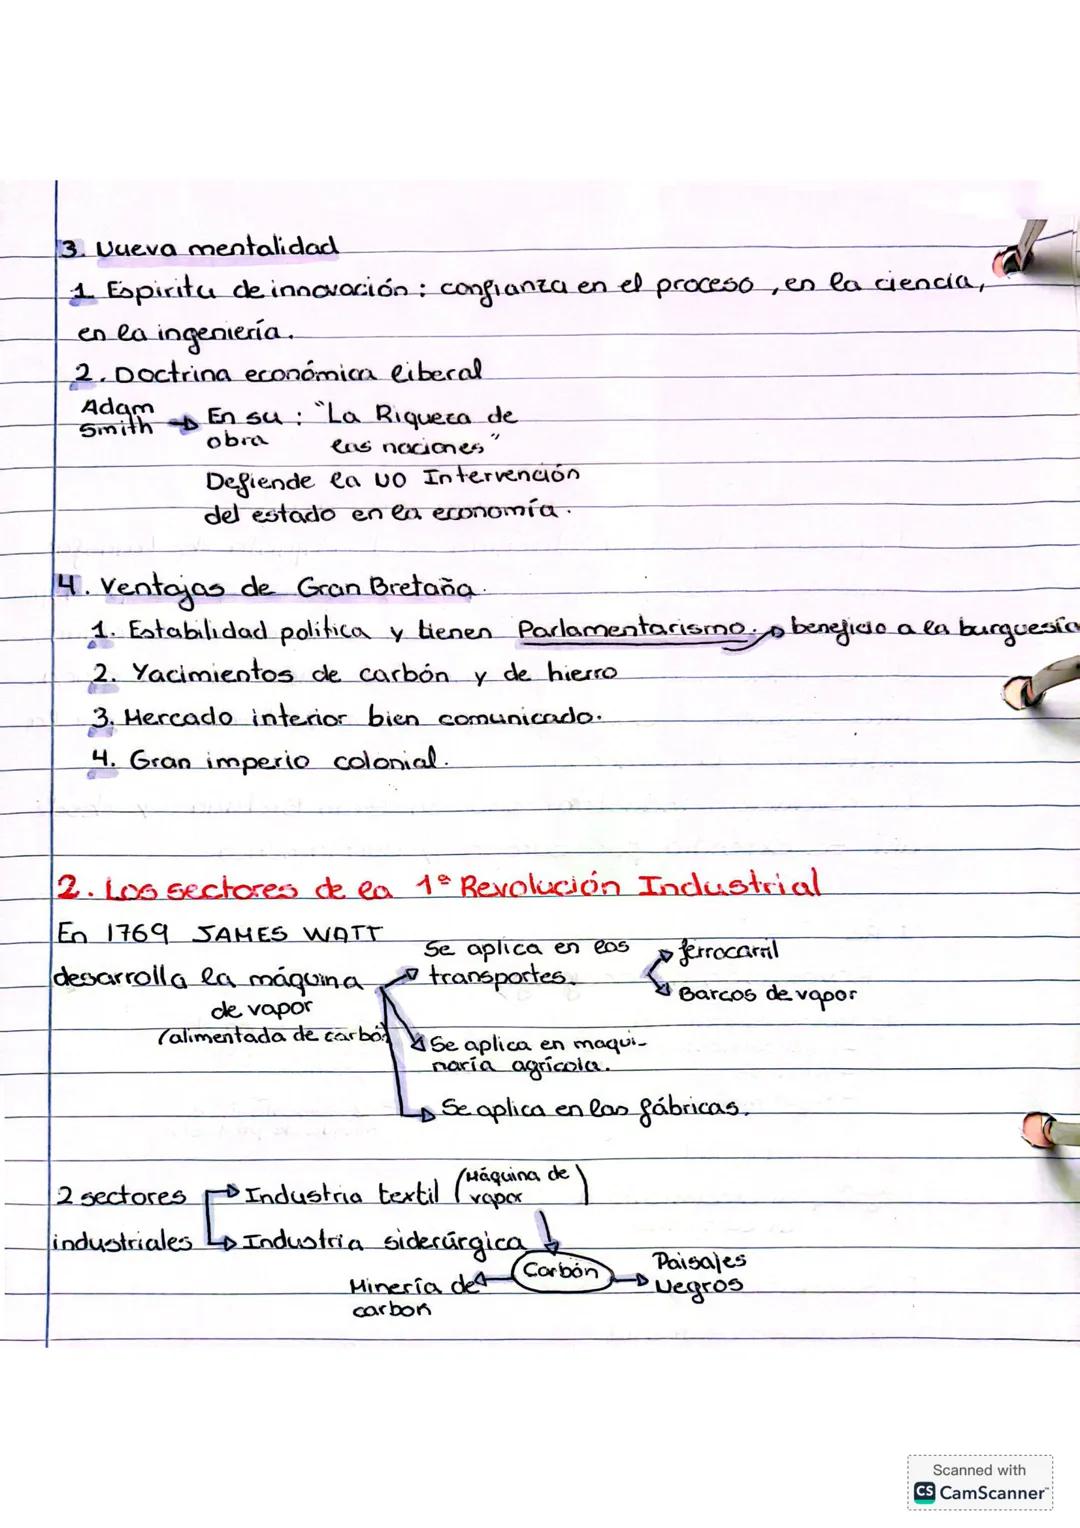 3. Nueva mentalidad
1 Espiritu de innovación: confianza en el proceso, en la ciencia,
en la ingeniería.
2. Doctrina económica liberal
Adam Smith → En su obra : "La Riqueza de
las naciones"
Defiende la NO Intervención
del estado en la economía.
4. Ventajas de Gran Bretaña.
1. Estabilidad politica y tienen Parlamentarismo. → beneficio a la burguesía
2. Yacimientos de carbón y de hierro
3. Mercado interior bien comunicado.
4. Gran imperio colonial.
2. Los sectores de la 1ª Revolución Industrial
En 1769 JAMES WATT
desarrolla la máquina
de vapor
(alimentada de carbón
Se aplica en los
transportes.
ferrocarril
Barcos de vapor
Se aplica en maqui-
naría agrícola.
Se aplica en las fábricas.
2 sectores
industriales
Industria textil (Máquina de vapor)
Industria siderúrgica
Carbón
Minería de
carbon
Paisajes
Negros
Scanned with
CS CamScanner